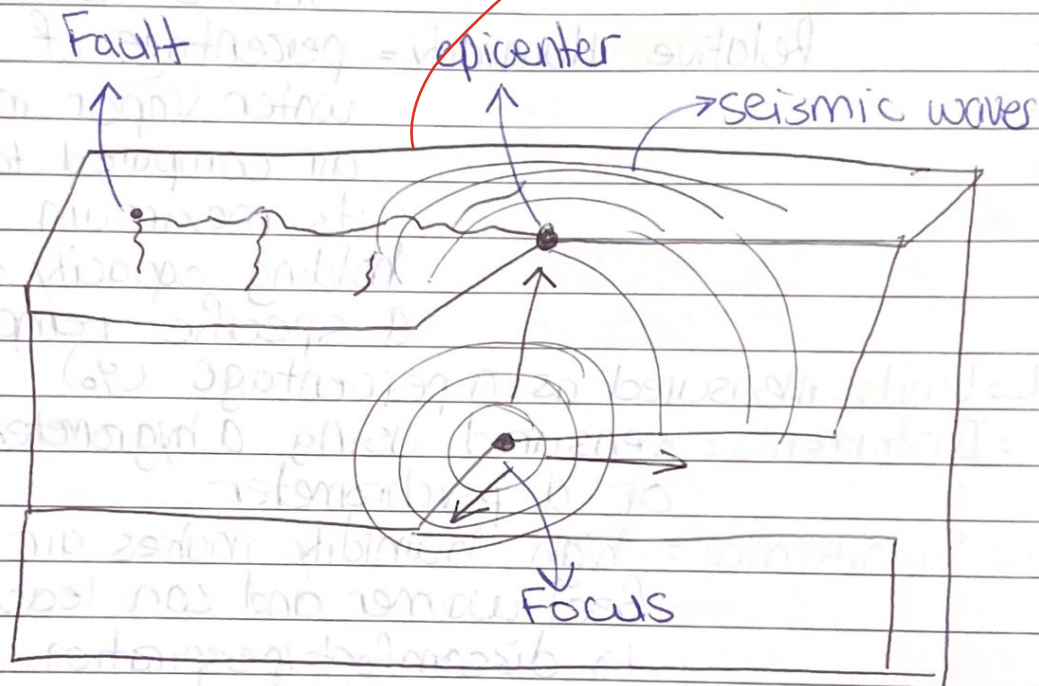 Fault
epicenter
seismic waves
Focus